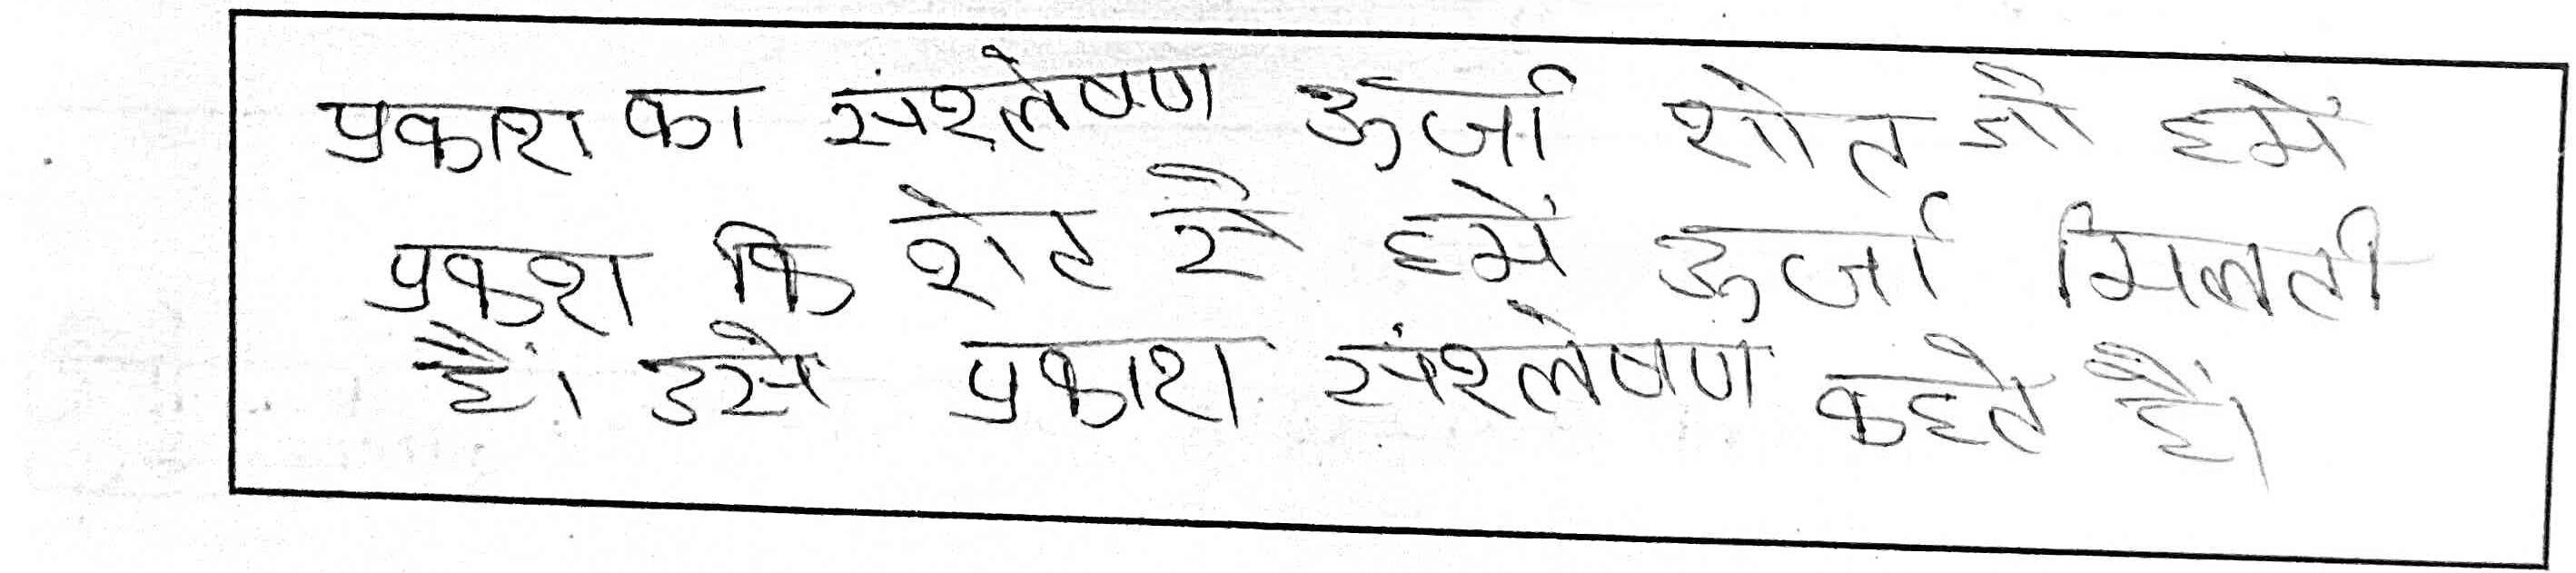 प्रकाश का संश्लेषण ऊर्जा शोत जौ हमें
प्रकश कि शेट सै हमें ऊर्जा मिलती
हैं। उसे प्रकाश संश्लेषण कहते हैं।